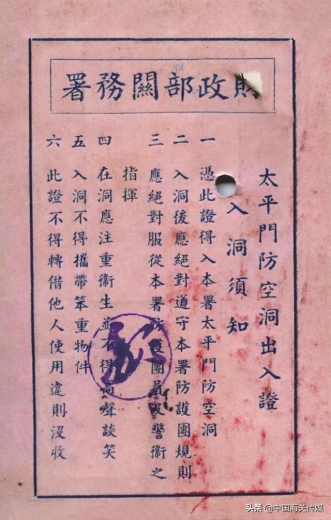 財政部關務署
太平門防空洞出入證
入洞須知
一 憑此證得入本署太平門防空洞
二 入洞後應絕對遵守本署防護團規則
三 應絕對服從本署防護團員及警衞之
指揮
四 在洞應注重衞生並不得高聲談笑
五 入洞不得攜帶笨重物件
六 此證不得轉借他人使用違則沒收
头条 @中国海关传媒